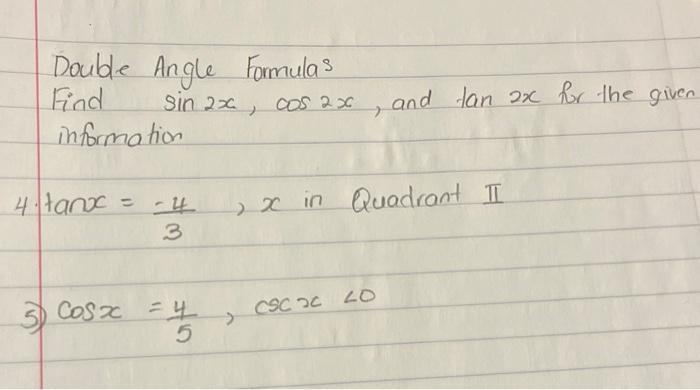 Double Angle Formulas
Find sin 2x, cos 2x, and tan 2x for the given
information
4. tanx = -4/3, x in Quadrant II
5) cosx = 4/5, csc x <0